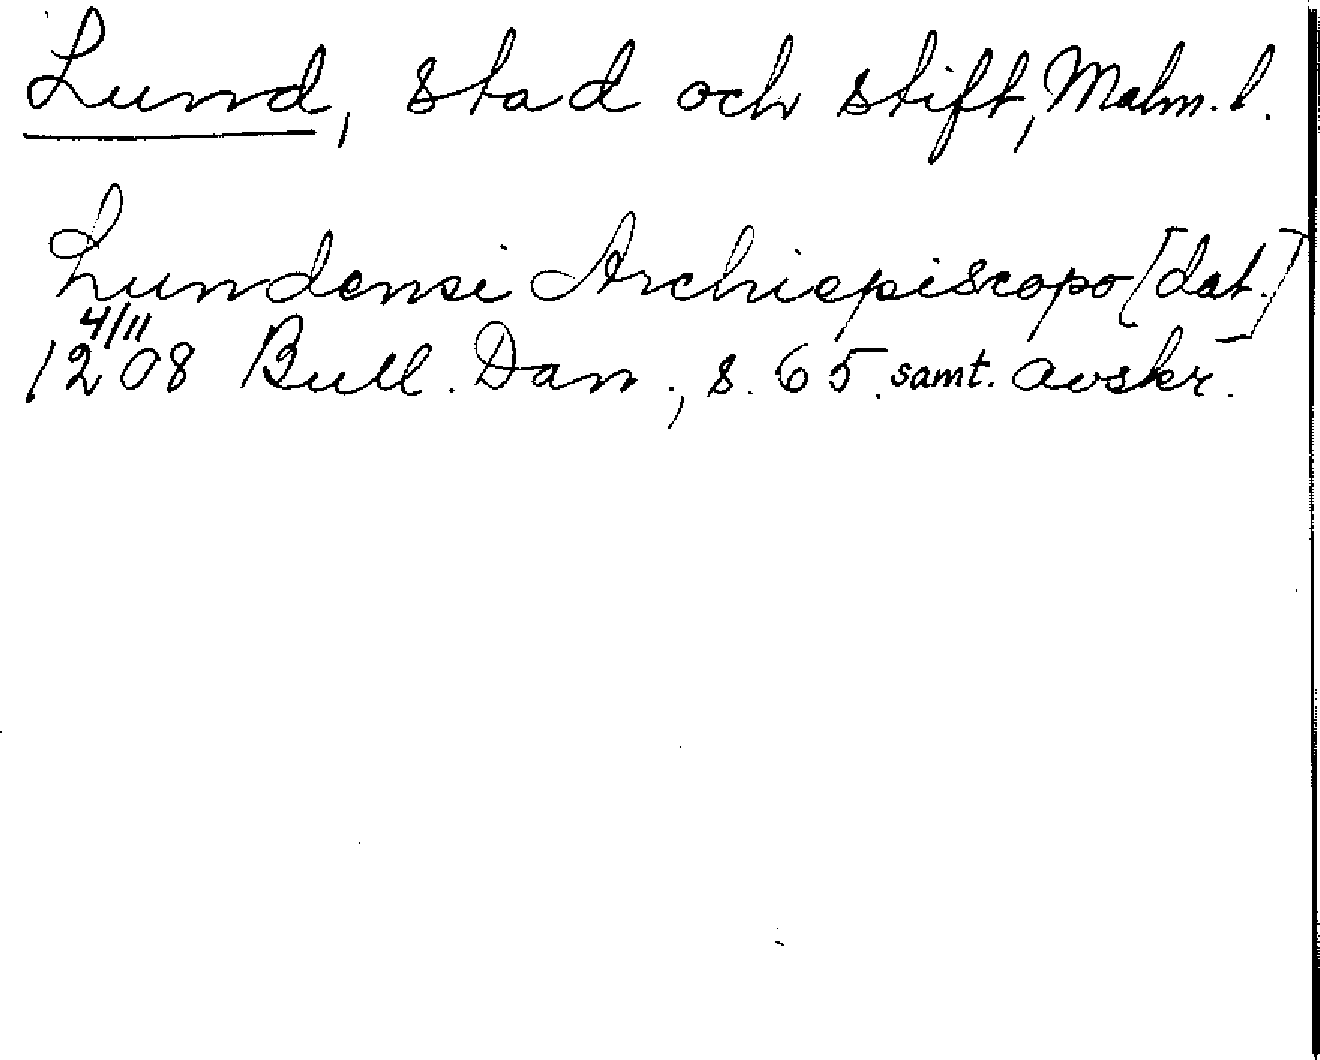 Lund, stad och stift, Malm. l.
Lundensi Archiepiscopo [dat.]
4/11
1208 Bull. Dan., s. 65. samt. avskr.